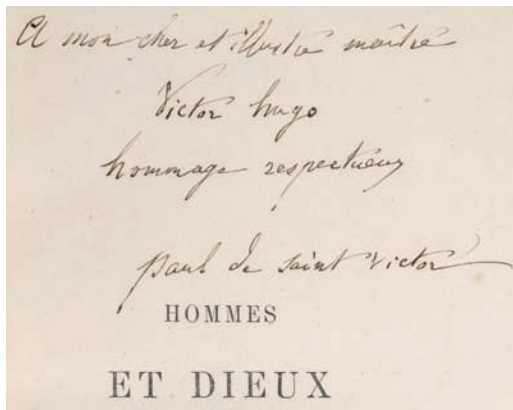 A mon cher et illustre maître
Victor hugo
hommage respectueux
paul de saint victor
HOMMES
ET DIEUX